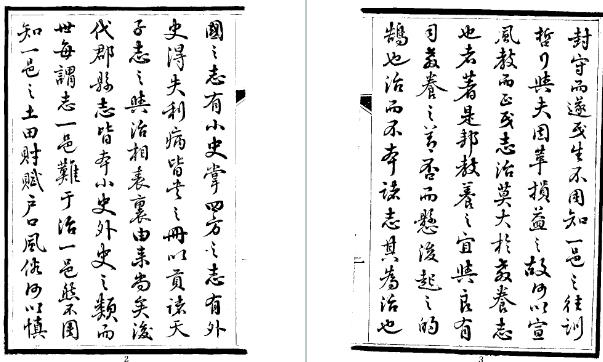 國之志有小史掌四方之志有外
史得失利病皆書之冊以貢諸天
子志之與治相表裏由来尚矣後
代郡縣志皆本小史外史之類而
世每謂志一邑難于治一邑然不周
知一邑之土田財賦戶口風俗何以慎
2
封守而遂民生不周知一邑之往訓
哲行與夫因革損益之故何以宣
風教而正民志治莫大於教養志
也者著是邦教養之宜與良有
司教養之善否而懸後起之的
鵠也治而不本諸志其為治也
3